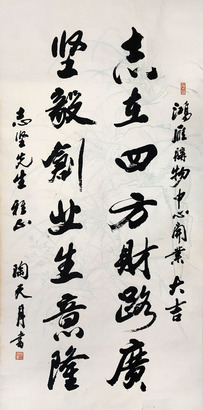 鴻雁購物中心開業大吉
志在四方財路廣
坚毅創业生意隆
志坚先生雅正
陶天月書